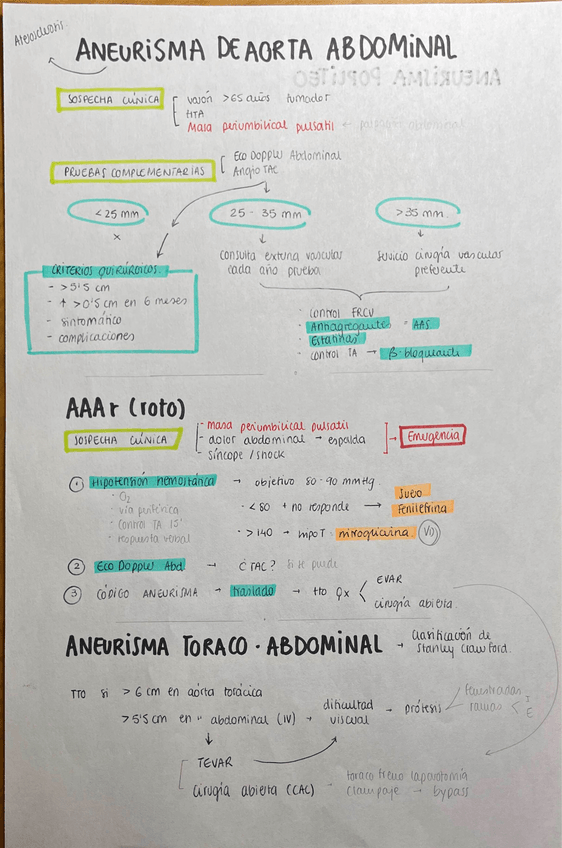 Aterosclerosis
ANEURISMA DE AORTA ABDOMINAL
SOSPECHA CLÍNICA
varón >65 años fumador
HTA
Masa periumbilical pulsatil
PRUEBAS COMPLEMENTARIAS
Eco Doppler Abdominal
Angio TAC
< 25 mm
25 - 35 mm
>35 mm
x
consulta externa vascular
cada año prueba
servicio cirugía vascular
preferente
CRITERIOS QUIRÚRGICOS
- >5'5 cm
- ↑ >0'5 cm en 6 meses
- sintomático
- complicaciones
· control FRCV
· Antiagregante = AAS
· Estatinas
· control TA → β-bloqueante
AAAr (roto)
SOSPECHA CLÍNICA
- Masa periumbilical pulsatil
- dolor abdominal → espalda
- síncope / shock
Emergencia
① Hipotensión hemostática → objetivo 80-90 mmHg.
· O2
· vía periférica
· control TA 15'
· respuesta verbal
· <80 + no responde →
suero
Fenilefrina
· >140 → impo T: nitroglicerina
② Eco Doppler Abd → ¿TAC? si se puede
③ CÓDIGO ANEURISMA → traslado → tto Qx
EVAR
cirugía abierta.
ANEURISMA TORACO-ABDOMINAL → clasificación de
Stanley Crawford.
TTO si > 6 cm en aorta torácica
>5'5 cm en " abdominal (IV) → dificultad
visceral → prótesis
fenestradas
ramas < I
E
TEVAR
cirugía abierta (CAC) -
toraco freno laparotomía
clampaje → bypass